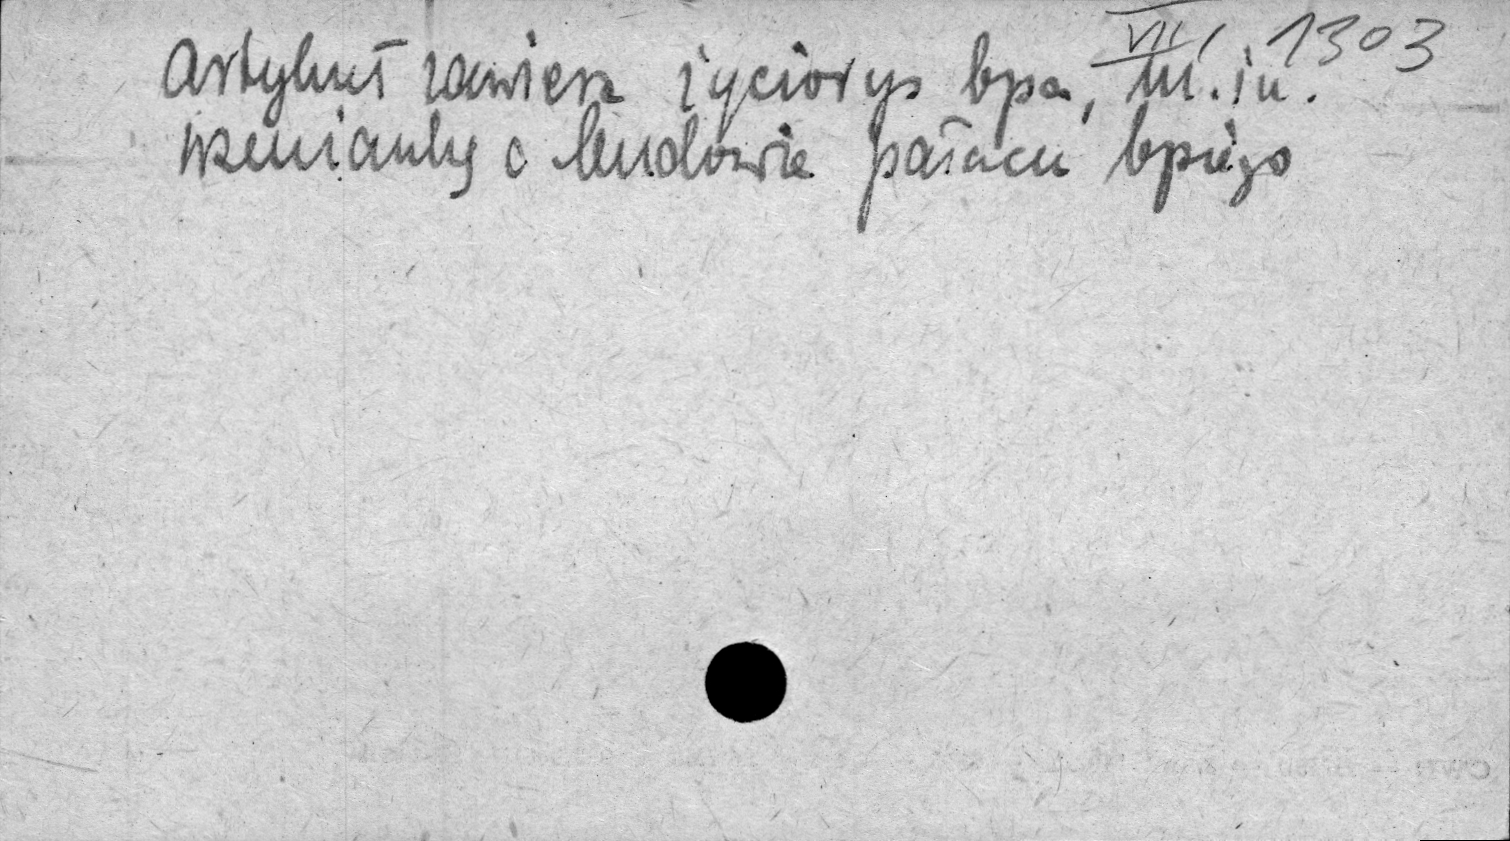 VII/1303
Artykuł zawiera życiorys bpa, m.in.
wzmianky o budowie pałacu bpiego